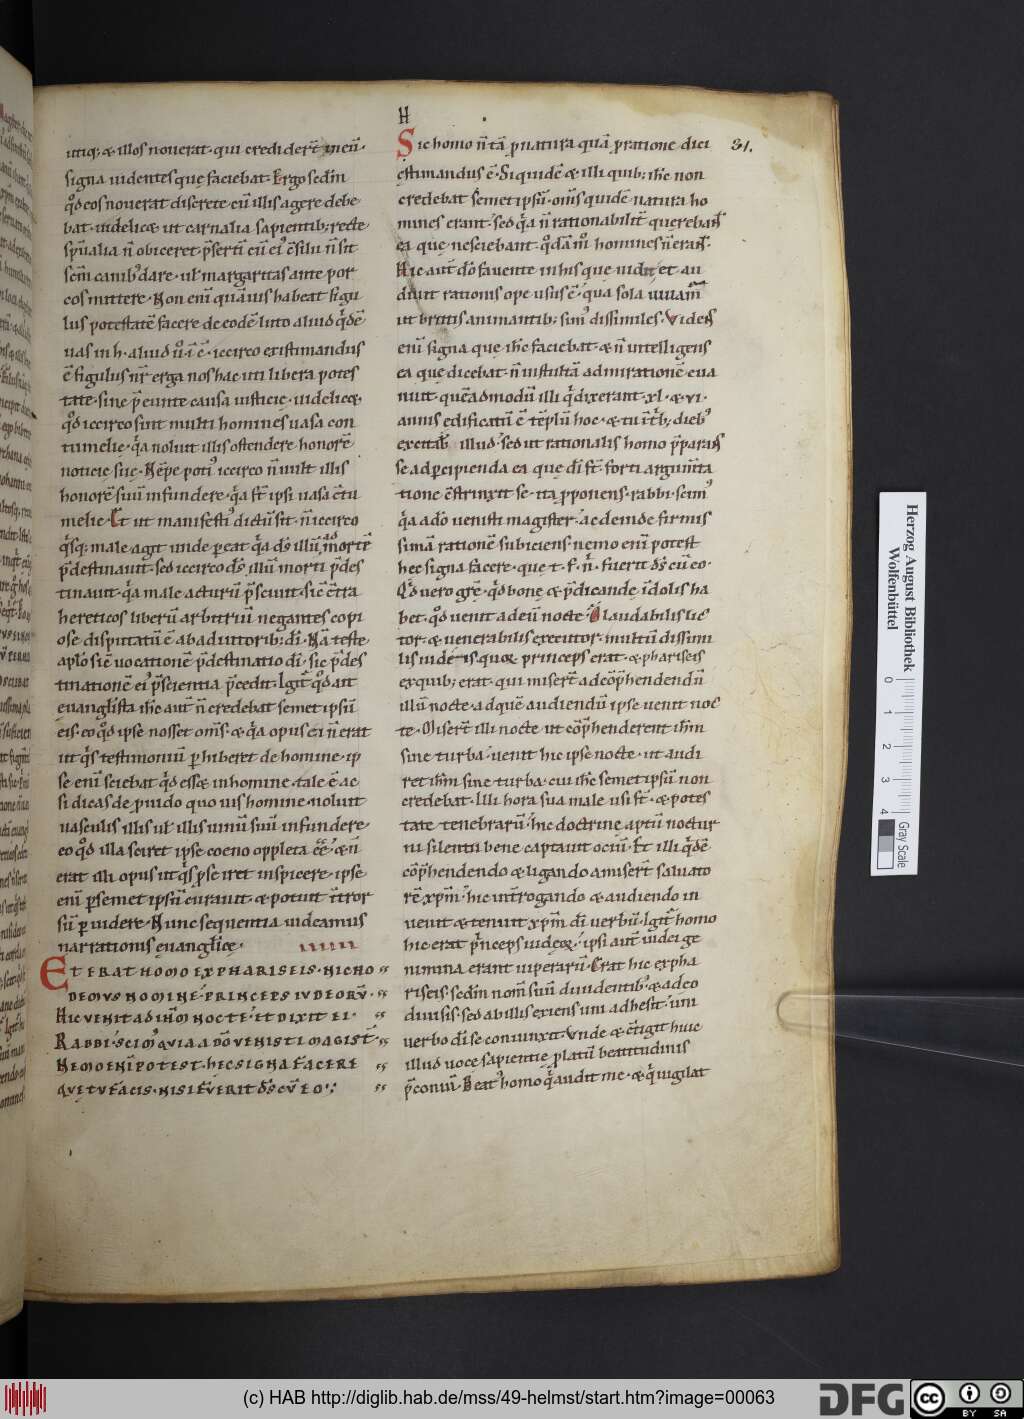 H
31.
utiq; & illos nouerat · qui credidert̄ in eū ·
signa uidentes quę faciebat · Ergo sed in
qđ eos nouerat discrete cū illis agere debe
bat · uidelic& ut carnalia sapientib; recte
sp̄ualia n̄ obiceret · p̄serti cū ei' c̄silii n̄ sit
sc̄m canib' dare · ul̄ margaritas ante por
cos mittere · Non eni quāuis habeat figu
lus potestatē facere de eodē luto aliud qđē
uas in h · aliud u̓ · i c̄ · iccirco existimandus
ē figulus nr̄ erga nos hac uti libera potes
tate · sine p̄eunte causa iusticię · uidelic& ·
qđ iccirco sint multi homines uasa con
tumelię · qa noluit illis ostendere honorē
noticię suę · Nēpe poti' iccirco n̄ uult illis
honorē suū infundere · qa st̄ ipsi uasa c̄tu
melię · Et ut manifesti' dictū sit · n̄ iccirco
qsq; male agit unde pereat qa dš illū ad mortē
p̄destinauit · sed iccirco dš illū morti p̄des
tinauit · qa male acturū p̄sciuit · sic c̄tra
hereticos liberū arbitriū negantes copi
ose disputatū ē ab adiutorib; di · Nā teste
aplo sic uocationē p̄destinatio di · sic p̄des
tinationē ei' p̄scientia p̄cedit · Igit̄ qđ ait
euanglista ihc aut̄ n̄ credebat semet ipsū
eis · eo qđ ipse nosset om̄s · & qa opus ei n̄ erat
ut qs testimoniū perhiberet de homine · ip
se eni sciebat qđ ess& in homine · tale ē ac
si dicas de puido quo uis homine · noluit
uasculis illis ul̄ illis uinū suū infundere ·
eo qđ illa sciret ipse coeno oppleta eē · & n̄
erat illi opus ut qs p̄se iret inspicere · ipse
eni p̄semet ipsū curauit · & potuit n̄tror
sū puidere · Nunc sequentia uideamus
narrationis euanglicę ·
ET ERAT HOMO EX PHARISEIS · NICHO
DEMVS NOMINE · PRINCEPS IVDEORV̄ ·
HIC VENIT AD IHM̄ NOCTE · ET DIXIT EI ·
RABBI · SCIM' QVIA A DŌ VENISTI MAGIST̄ ·
NEMO ENĪ POTEST HEC SIGNA FACERE
QVĘ TV FACIS · NISI FVERIT DŠ CVM EO ·
Sic homo n̄ tā p natura quā p ratione dici
ęstimandus ē · Si quidē & illi quib; ihc non
credebat semet ipsū · om̄s quidē natura ho
mines erant · sed qa n̄ rationabilit̄ querebant
ea quę nesciebant · qdā m̊ homines n̄ erant ·
Hic aut̄ dō fauente in his quę uidit et au
diuit rationis ope usus ē · qua sola uiuim'
ut brutis animantib; sim' dissimiles · Videns
eni signa quę ihc faciebat · & n̄ intelligens
ea quę dicebat · n̄ in stultā admirationē eua
nuit · quēadmodū illi q dixerant · xl · & vi ·
annis edificatū ē tēplū hoc · & tu i trib; dieb'
excitab̄ illud · sed ut rationalis homo p̄parans
se ad percipienda ea quę di st̄ · forti argum̄ta
tione c̄strinxit se · ita pponens · rabbi · scim'
qa a dō uenisti magister · ac deinde firmis
simā rationē subiciens · nemo eni potest
hec signa facere · quę · t · f · n̄ · fuerit dš cū eo ·
Qđ uero grē · qđ bonę & p̄dicandę idolis ha
bet · qđ uenit ad eū nocte · O laudabilis lic
tor · & uenerabilis executor · multū dissimi
lis uidetis quo& princeps erat · & phariseis
ex quib; erat · qui misert̄ ad cōp̄hendendū
illū nocte · ad quē audiendū ipse uenit noc
te · Miserē illi nocte ut cōp̄henderent ihm̄
sine turba · uenit hic ipse nocte · ut audi
ret ihm̄ sine turba · cui ihc semet ipsū non
credebat · Illi hora sua male usi st̄ · & potes
tate tenebrarū · hic doctrinę aptū noctur
ni silentii bene captauit ociū · Et illi qđē
cōp̄hendendo & ligando amisert̄ saluato
rē xpm̄ · hic int̄rogando & audiendo in
uenit & tenuit xpm̄ di uerbū · Igit̄ homo
hic erat p̄nceps iudęo& · ipsi aut̄ iudei ge
nimina erant uiperarū · Erat hic ex pha
riseis · sed in nom̄ suū diuidentib' · & a deo
diuisis · sed ab illis exiens uni adhesit · uni
uerbo di se coniunxit · Vnde & c̄tigit huic
illud uoce sapientię platū beatitudinis
p̄coniū · Beat' homo q audit me · & q uigilat
Herzog August Bibliothek
Wolfenbüttel
0 1 2 3 4
Gray Scale
(c) HAB http://diglib.hab.de/mss/49-helmst/start.htm?image=00063
HAB
DFG
cc
BY SA